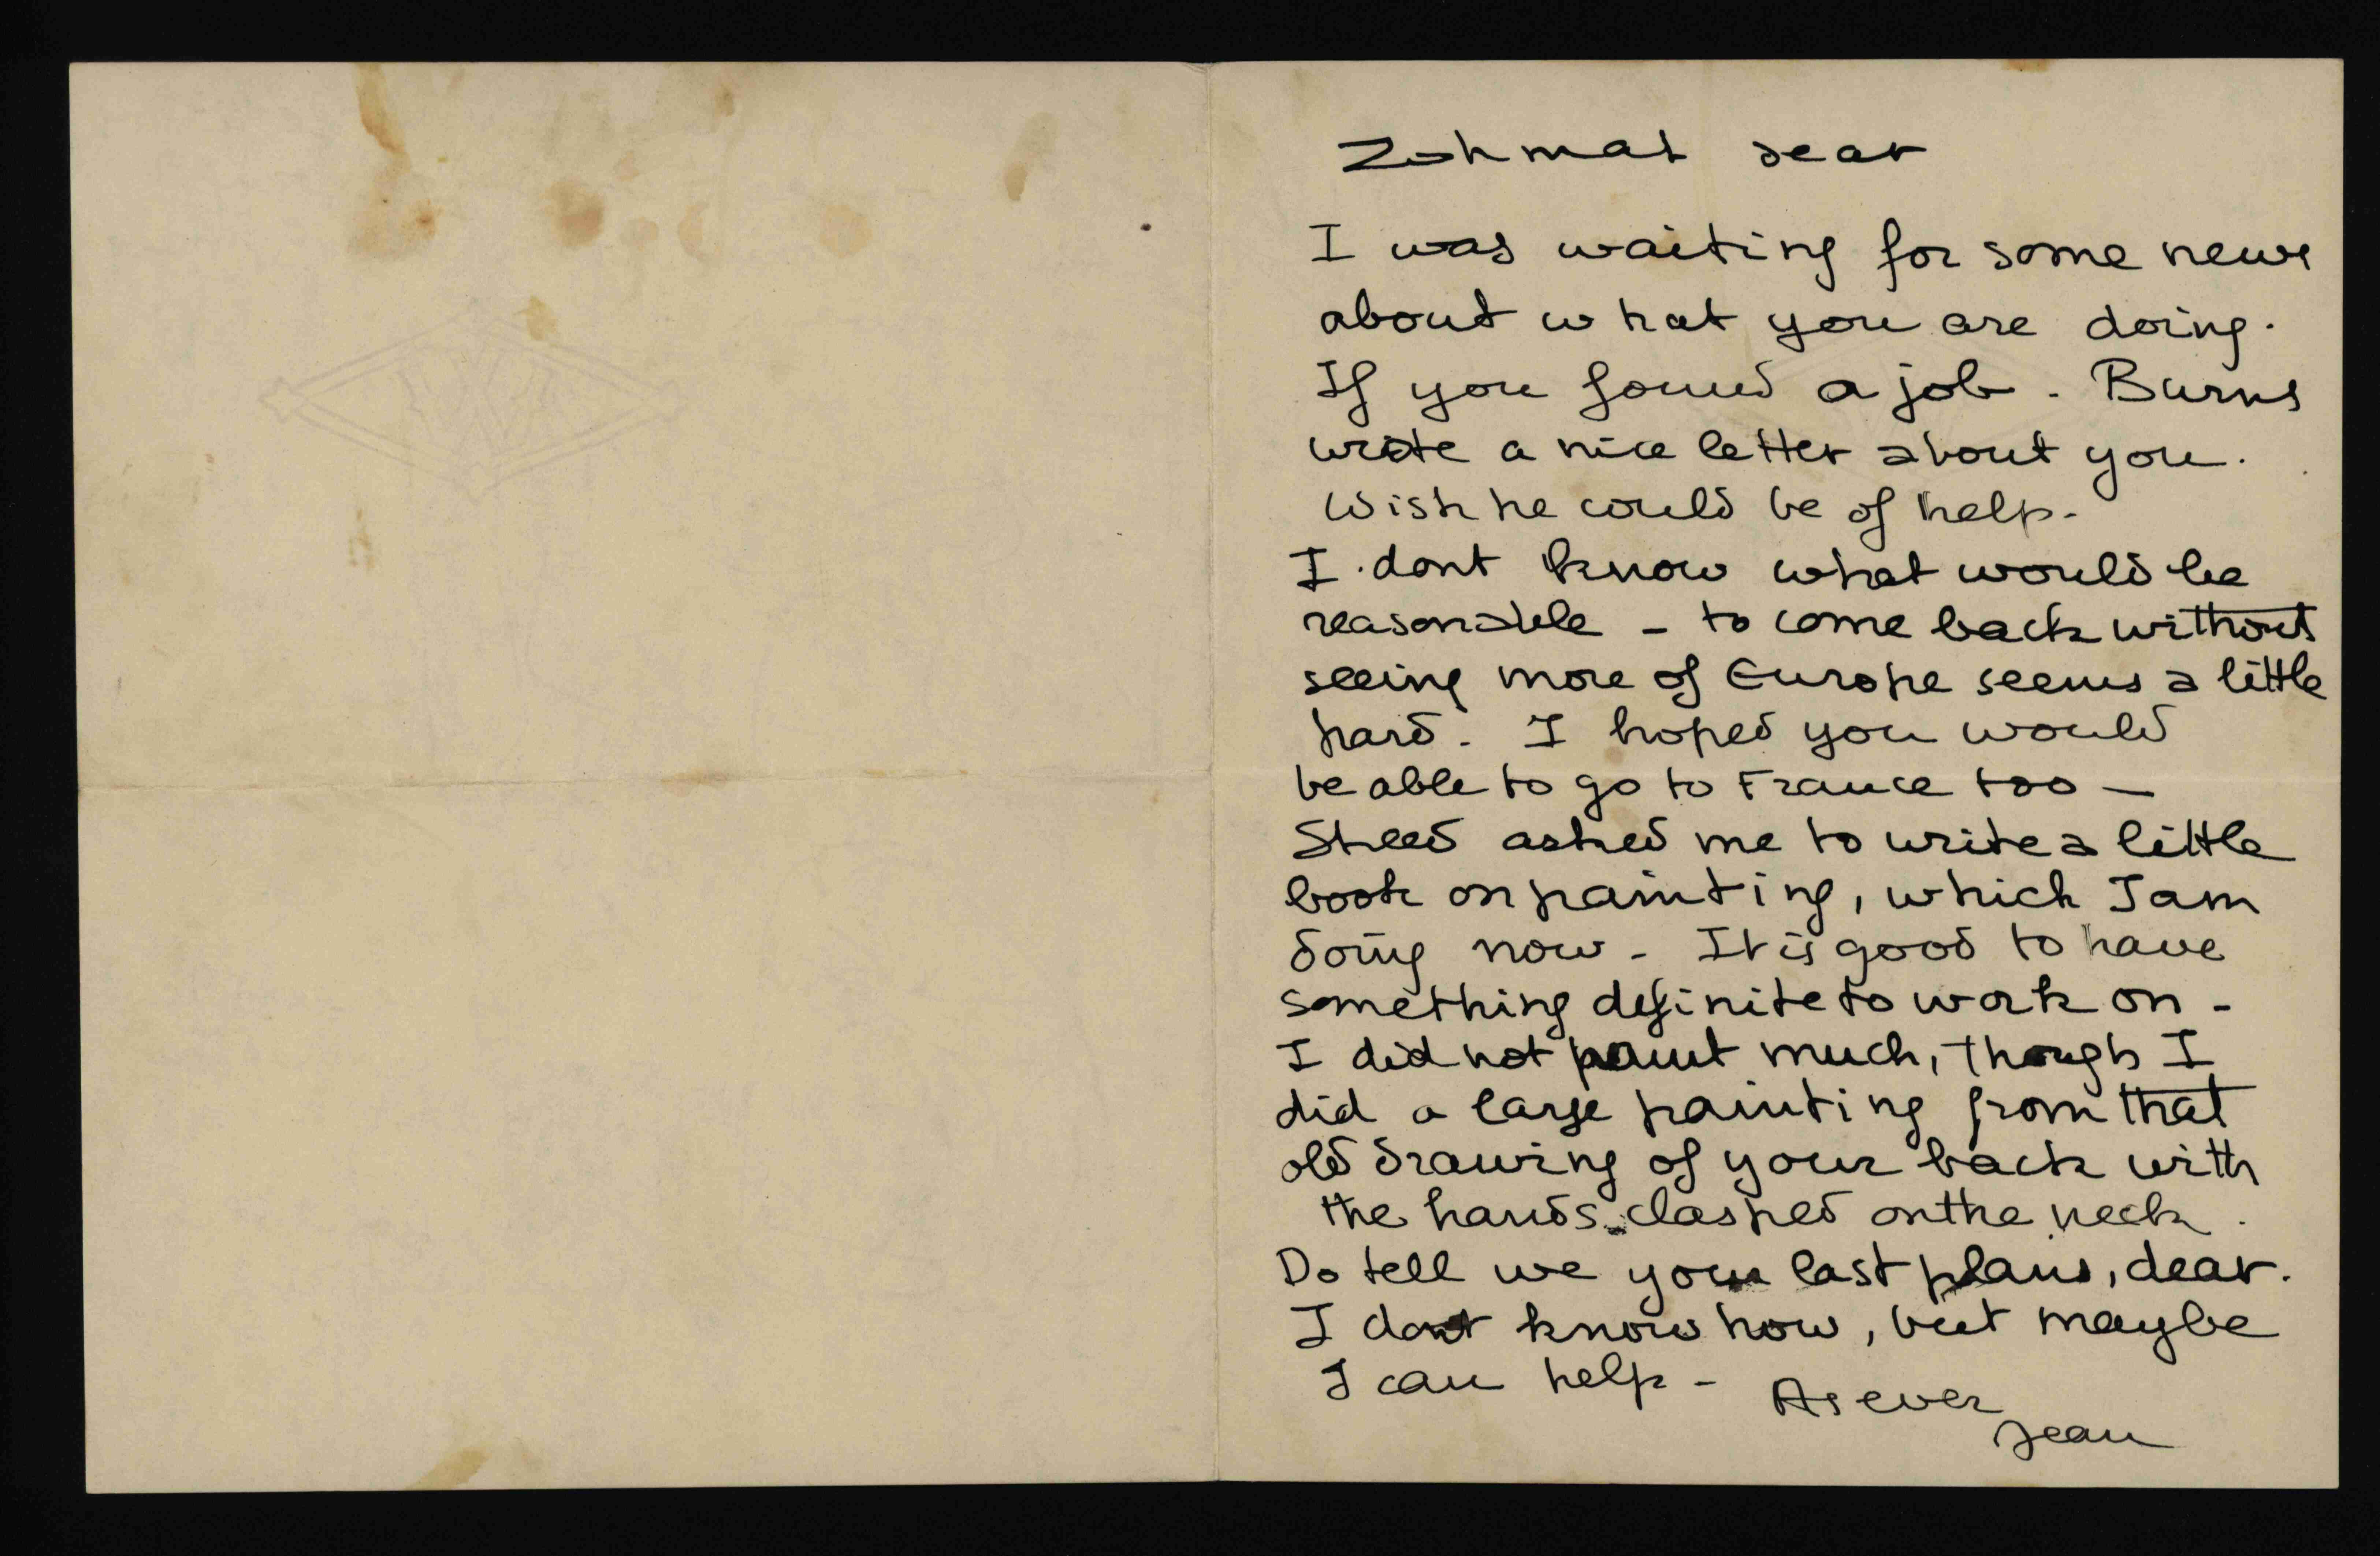 Zohmah dear
I was waiting for some news
about what you are doing.
If you found a job. Burns
wrote a nice letter about you.
Wish he could be of help.
I dont know what would be
reasonable - to come back without
seeing more of Europe seems a little
hard. I hoped you would
be able to go to France too —
Sheed asked me to write a little
book on painting, which I am
doing now - It is good to have
something definite to work on -
I did not paint much, though I
did a large painting from that
old drawing of your back with
the hands clasped on the neck.
Do tell me your last plans, dear.
I dont know how, but maybe
I can help - As ever
Jean